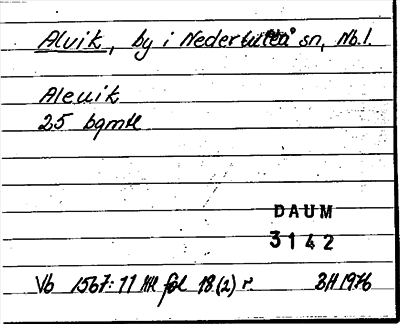 Alvik, by i Nederluleå sn, Nb.l.
Aleuik
25 bqmtl
DAUM
3142
Vb 1567:11 Ml fol 18(2) r. BH 1976